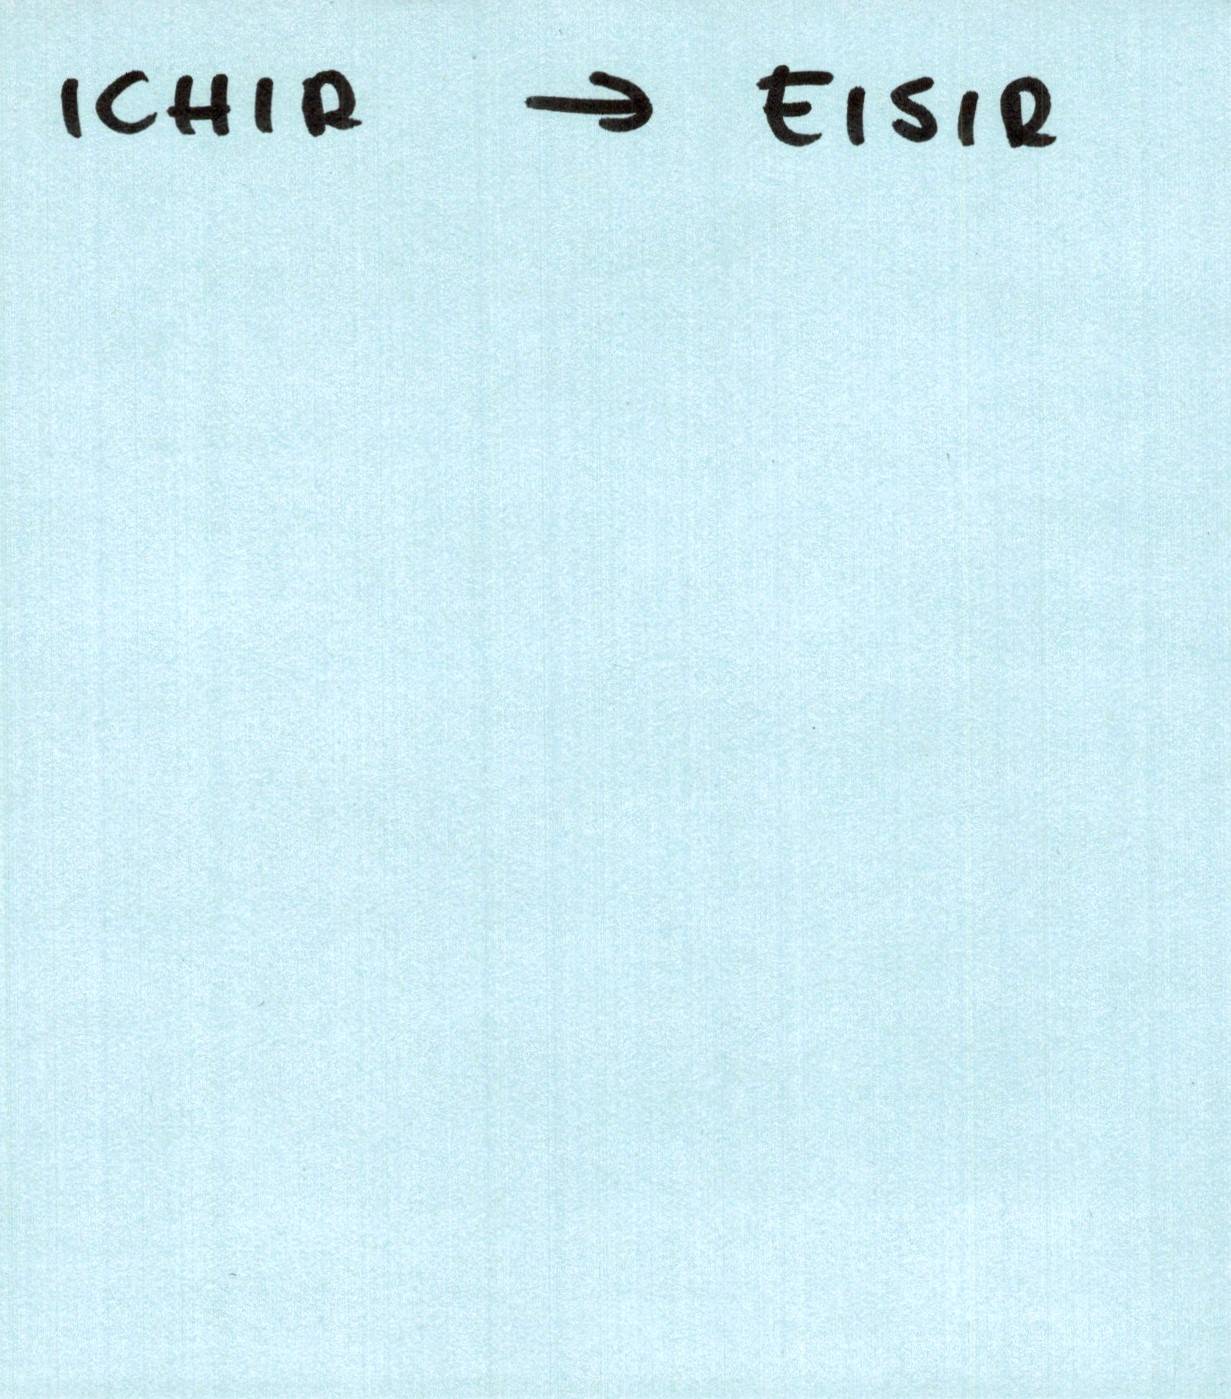 ICHIR → EISIR